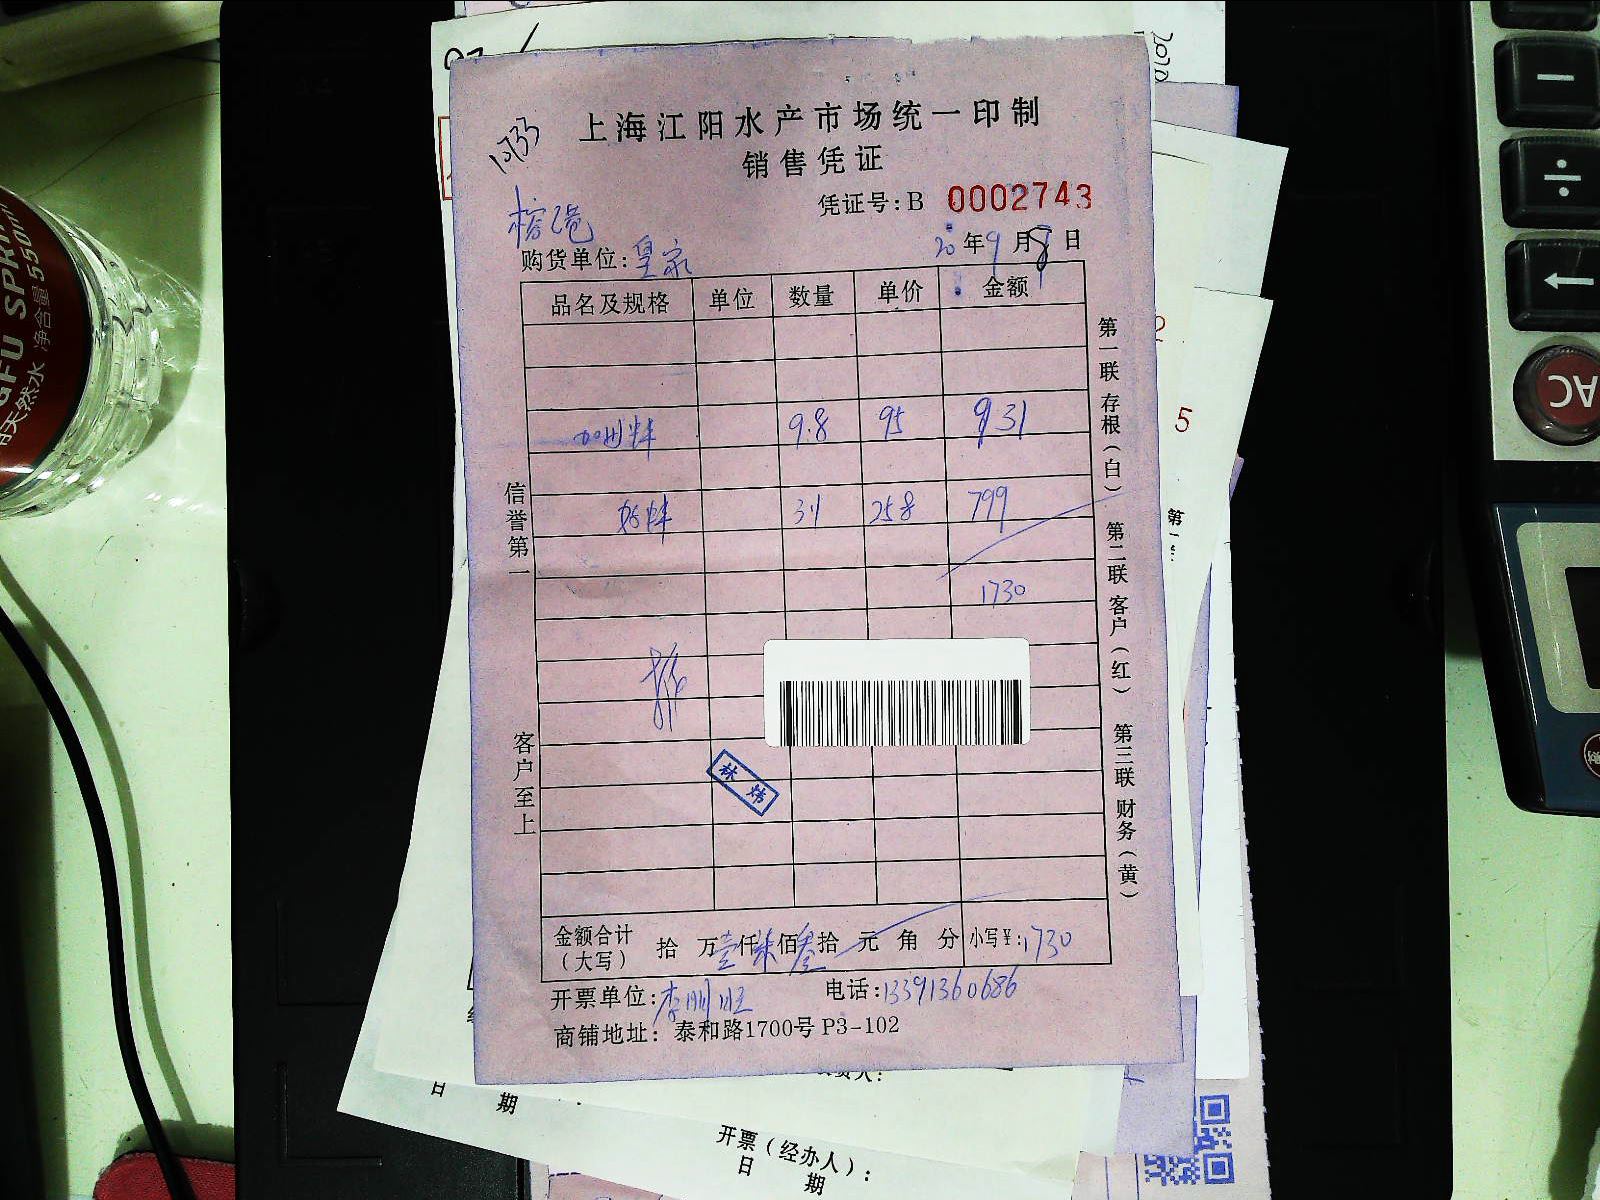 上海江阳水产市场统一印制
销售凭证
10733
凭证号:B 0002743
榕港
购货单位:皇家
20年9月8日
品名及规格 单位 数量 单价 金额
加州蚌 9.8 95 931
31 258 799
1730
林炜
金额合计（大写） 拾 万壹仟柒佰叁拾 元 角 分 小写¥:1730
开票单位:李朋旺 电话:13391360686
商铺地址: 泰和路1700号 P3-102
信誉第一
客户至上
第一联 存根（白） 第二联 客户（红） 第三联 财务（黄）
天然水 净含量550ml
÷
AC
5
日 期
开票（经办人）:
日 期